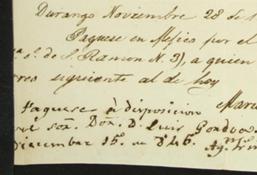 Durango Noviembre 28 de 1
Paguese en Mejico por el
S. Ramon N. 3), a quien
siguiente al de hoy
Paguese à disposicion
Don. D. Luis
Diciembre 15. 846.